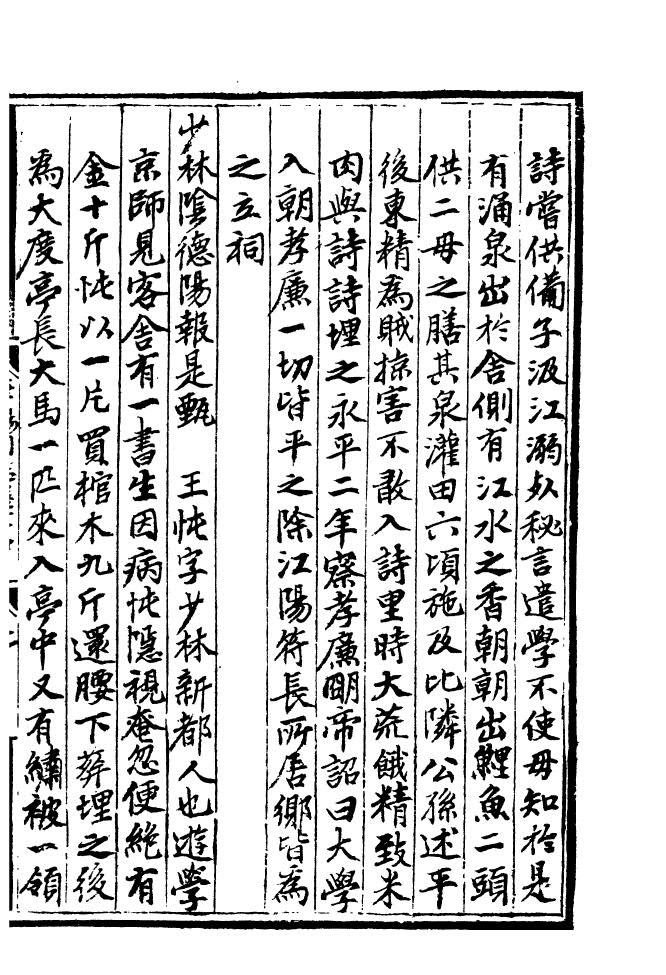 詩嘗供備子汲江溺夊秘言遣學不使母知於是
有涌泉出於舍側有江水之香朝朝出鯉魚二頭
供二母之膳其泉灌田六頃施及比隣公孫述平
後東精為賊掠害不敢入詩里時大荒餓精致米
肉與詩詩埋之永平二年察孝廉明帝詔曰大學
入朝孝廉一切皆平之除江陽符長所居鄉皆為
之立祠
少林陰德陽報是甄　王忳字少林新都人也遊學
京師見客舍有一書生因病忳隱視奄忽便絶有
金十斤忳以一片買棺木九斤還腰下葬埋之後
為大度亭長大馬一匹來入亭中又有繡被一領